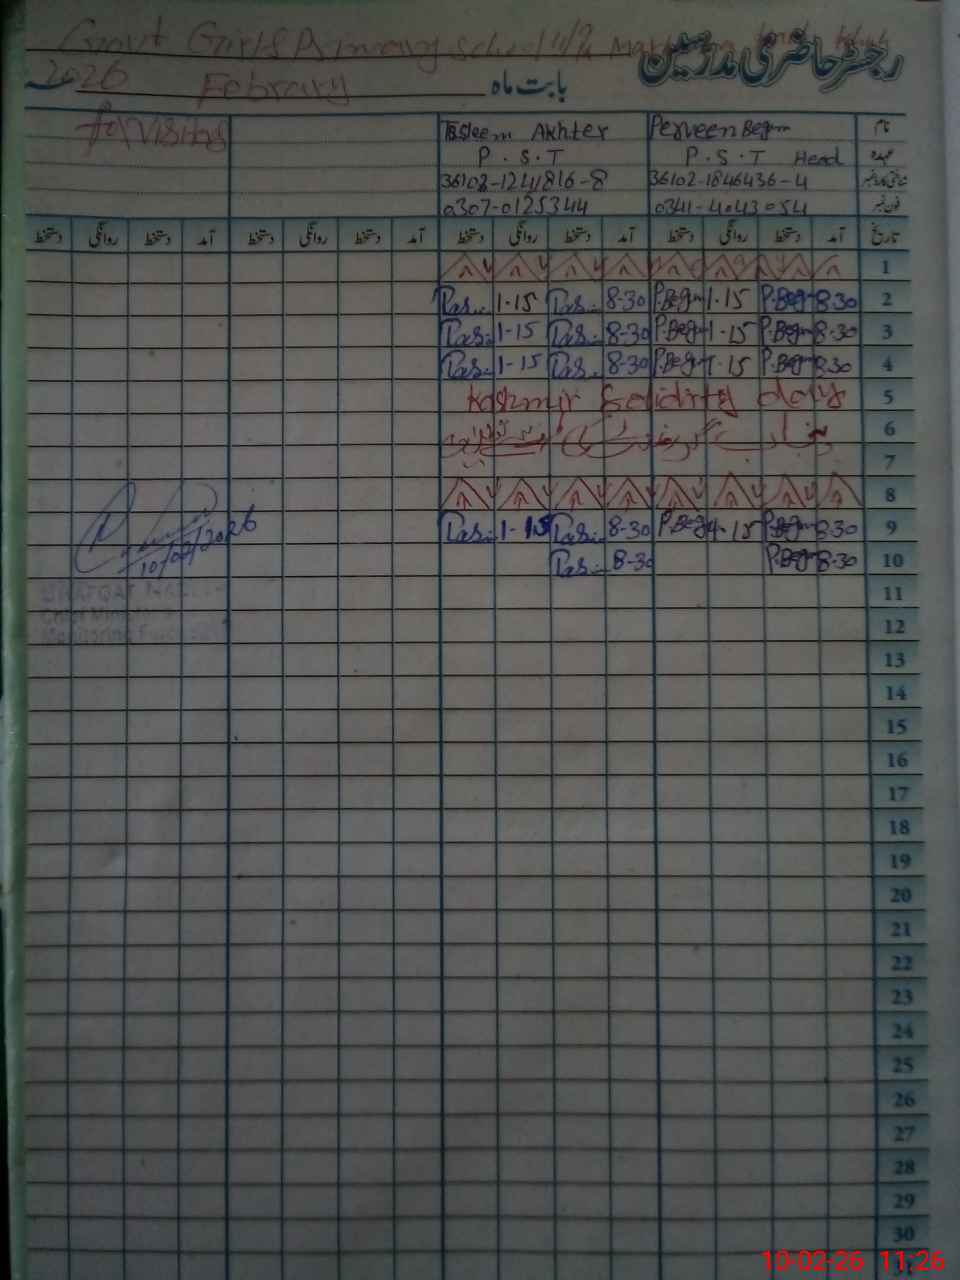 Govt Girls Primary School
رجسٹر حاضری مدرسین
بابت ماہ February 2026
نام Perveen Begum Tasleem Akhter For Visitors
عہدہ P.S.T Head P.S.T
شناختی کارڈ نمبر 36102-1846436-4
فون نمبر 0341-4043054 0307-0125344
تاریخ آمد دستخط روانگی دستخط آمد دستخط روانگی دستخط آمد دستخط روانگی دستخط آمد دستخط روانگی دستخط
1
2 8-30 P.Begum 1-15 P.Begum 8-30 Tas.. 1-15 Tas..
3 8-30 P.Begum 1-15 P.Begum 8-30 Tas.. 1-15 Tas..
4 8-30 P.Begum 1-15 P.Begum 8-30 Tas.. 1-15 Tas..
5 Kashmir Solidirty day
6
7
8
9 8-30 P.Begum 1-15 P.Beg 8-30 Tas.. 1-15 Tas..
10 8-30 P.Begum 8-30 Tas..
10/02/2026
11
Chief Minister's
12
Monitoring Force
13
14
15
16
17
18
19
20
21
22
23
24
25
26
27
28
29
30
10-02-26 11:26